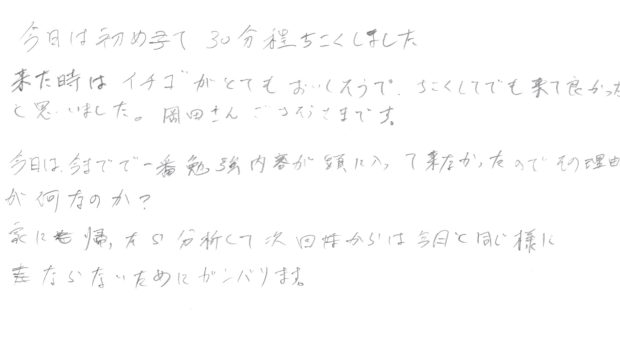 今日は初めて30分程ちこくしました
来た時はイチゴがとてもおいしそうで、ちこくしてでも来て良かった
と思いました。岡田さんごちそうさまです。
今日は、今までで一番勉強内容が頭に入って来なかったのでその理由
が何なのか?
家に帰ったら分析して次回からは今日と同じ様に
ならないためにガンバります。